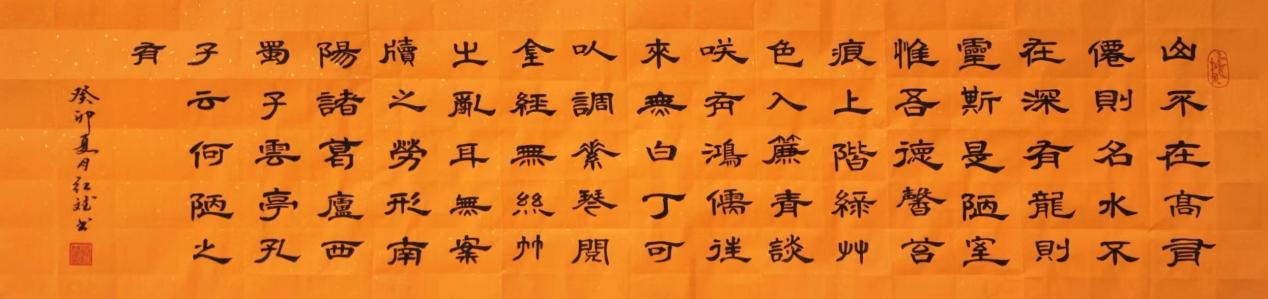 山不在高有
僊則名水不
在深有龍則
靈斯是陋室
惟吾德馨苔
痕上階綠艸
色入簾青談
咲有鴻儒往
來無白丁可
以調素琴閱
金經無絲竹
之亂耳無案
牘之勞形南
陽諸葛廬西
蜀子雲亭孔
子云何陋之
有
癸卯夏月红书